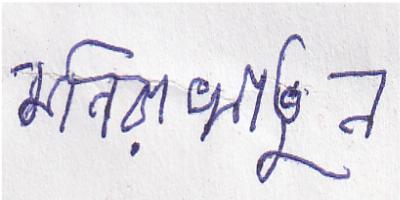 মনিরা খাতুন